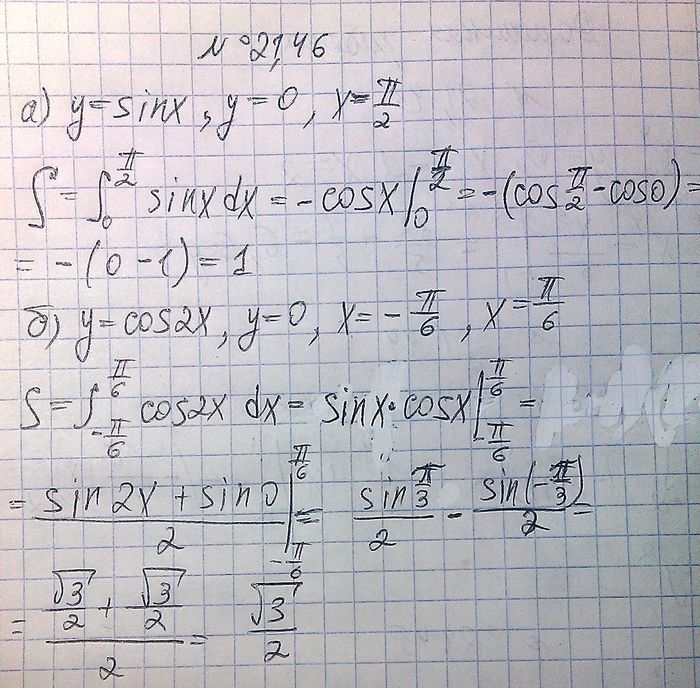 № 21,46
а) y=sinx, y=0, x=π/2
S=∫₀^(π/2) sinx dx = -cosx|₀^(π/2) = -(cos π/2 - cos0)=
= -(0-1)=1
б) y=cos2x, y=0, x=-π/6, x=π/6
S=∫_(-π/6)^(π/6) cos2x dx = sinx·cosx|_(-π/6)^(π/6) =
= (sin2x + sin0)/2 |_(-π/6)^(π/6) = (sin π/3)/2 - (sin(-π/3))/2 =
= (√3/2 + √3/2)/2 = √3/2